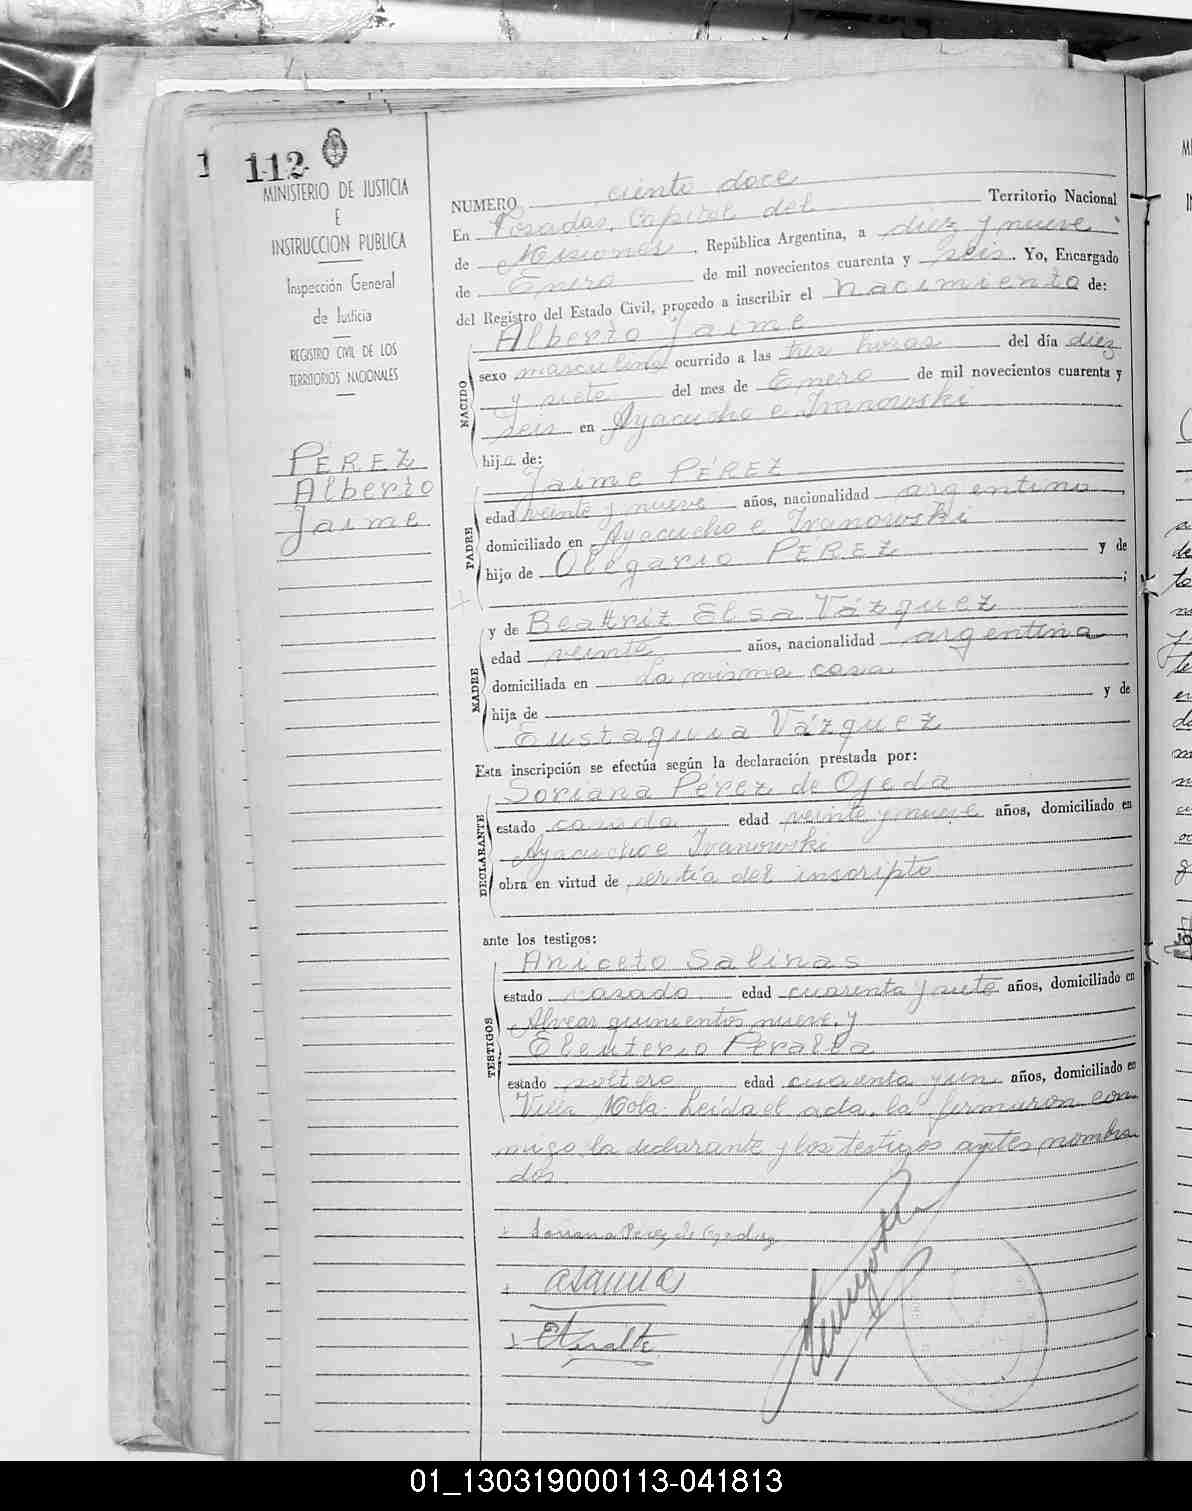 112
MINISTERIO DE JUSTICIA
E
INSTRUCCION PUBLICA
Inspección General
de Justicia
REGISTRO CIVIL DE LOS
TERRITORIOS NACIONALES
PÉREZ
Alberto
Jaime
NUMERO ciento doce
En Posadas, Capital del Territorio Nacional
de Misiones, República Argentina, a diez y nueve
de Enero de mil novecientos cuarenta y seis. Yo, Encargado
del Registro del Estado Civil, procedo a inscribir el nacimiento de:
NACIDO
Alberto Jaime
sexo masculino ocurrido a las tres horas del día diez
y siete del mes de Enero de mil novecientos cuarenta y
seis en Ayacucho e Ivanowski
hijo de:
PADRE
Jaime PÉREZ
edad veinte y nueve años, nacionalidad argentina,
domiciliado en Ayacucho e Ivanowski
hijo de Olegario PÉREZ y de
;
MADRE
y de Beatriz Elsa Vázquez
edad veinte años, nacionalidad argentina,
domiciliada en La misma casa
hija de y de
Eustaquia Vázquez
Esta inscripción se efectúa según la declaración prestada por:
DECLARANTE
Soriana Pérez de Ojeda
estado casada edad veinte y nueve años, domiciliado en
Ayacucho e Ivanowski
obra en virtud de ser tía del inscripto
ante los testigos:
TESTIGOS
Aniceto Salinas
estado casado edad cuarenta y años, domiciliado en
Alvear quinientos nueve, y
Eleuterio Peralta
estado soltero edad cuarenta y un años, domiciliado en
Villa Mola. Leída el acta, la firmaron con
migo la declarante y los testigos antes nombra
dos.
Soriana Perez de Ojeda
ASalinas
EPeralta
01_130319000113-041813